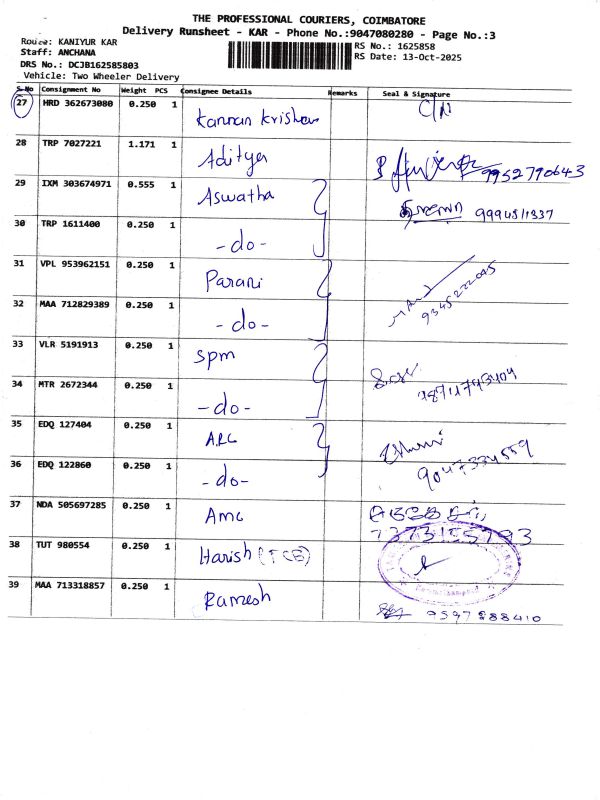 THE PROFESSIONAL COURIERS, COIMBATORE
Delivery Runsheet - KAR - Phone No.:9047080280 - Page No.:3
Route: KANIYUR KAR
RS No.: 1625858
Staff: ANCHANA
RS Date: 13-Oct-2025
DRS No.: DCJB162585803
Vehicle: Two Wheeler Delivery
S.No Consignment No Weight PCS Consignee Details Remarks Seal & Signature
27 HRD 362673080 0.250 1 Kannan Krishna C/N
28 TRP 7027221 1.171 1 Aditya 9952790643
29 IXM 303674971 0.555 1 Aswatha 9994811337
30 TRP 1611400 0.250 1 -do-
31 VPL 953962151 0.250 1 Parani 9345222045
32 MAA 712829389 0.250 1 -do-
33 VLR 5191913 0.250 1 spm
34 MTR 2672344 0.250 1 -do-
35 EDQ 127404 0.250 1
36 EDQ 122860 0.250 1 -do- 9047334559
37 NDA 505697285 0.250 1 Amc
7373155793
38 TUT 980554 0.250 1 Harish (TCB)
39 MAA 713318857 0.250 1 Ramesh 9597888410